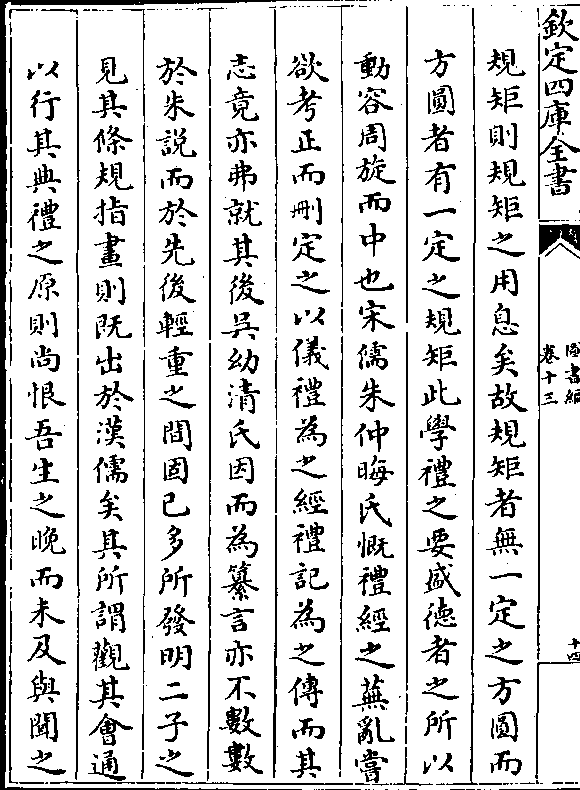 欽定四庫全書
圖書編
卷十三
十四
規矩則規矩之用息矣故規矩者無一定之方圓而
方圓者有一定之規矩此學禮之要盛德者之所以
動容周旋而中也宋儒朱仲晦氏慨禮經之蕪亂嘗
欲考正而刪定之以儀禮為之經禮記為之傳而其
志竟亦弗就其後吳幼清氏因而為纂言亦不數數
於朱説而於先後輕重之間固已多所發明二子之
見其條規指畫則既出於漢儒矣其所謂觀其會通
以行其典禮之原則尚恨吾生之晚而未及與聞之